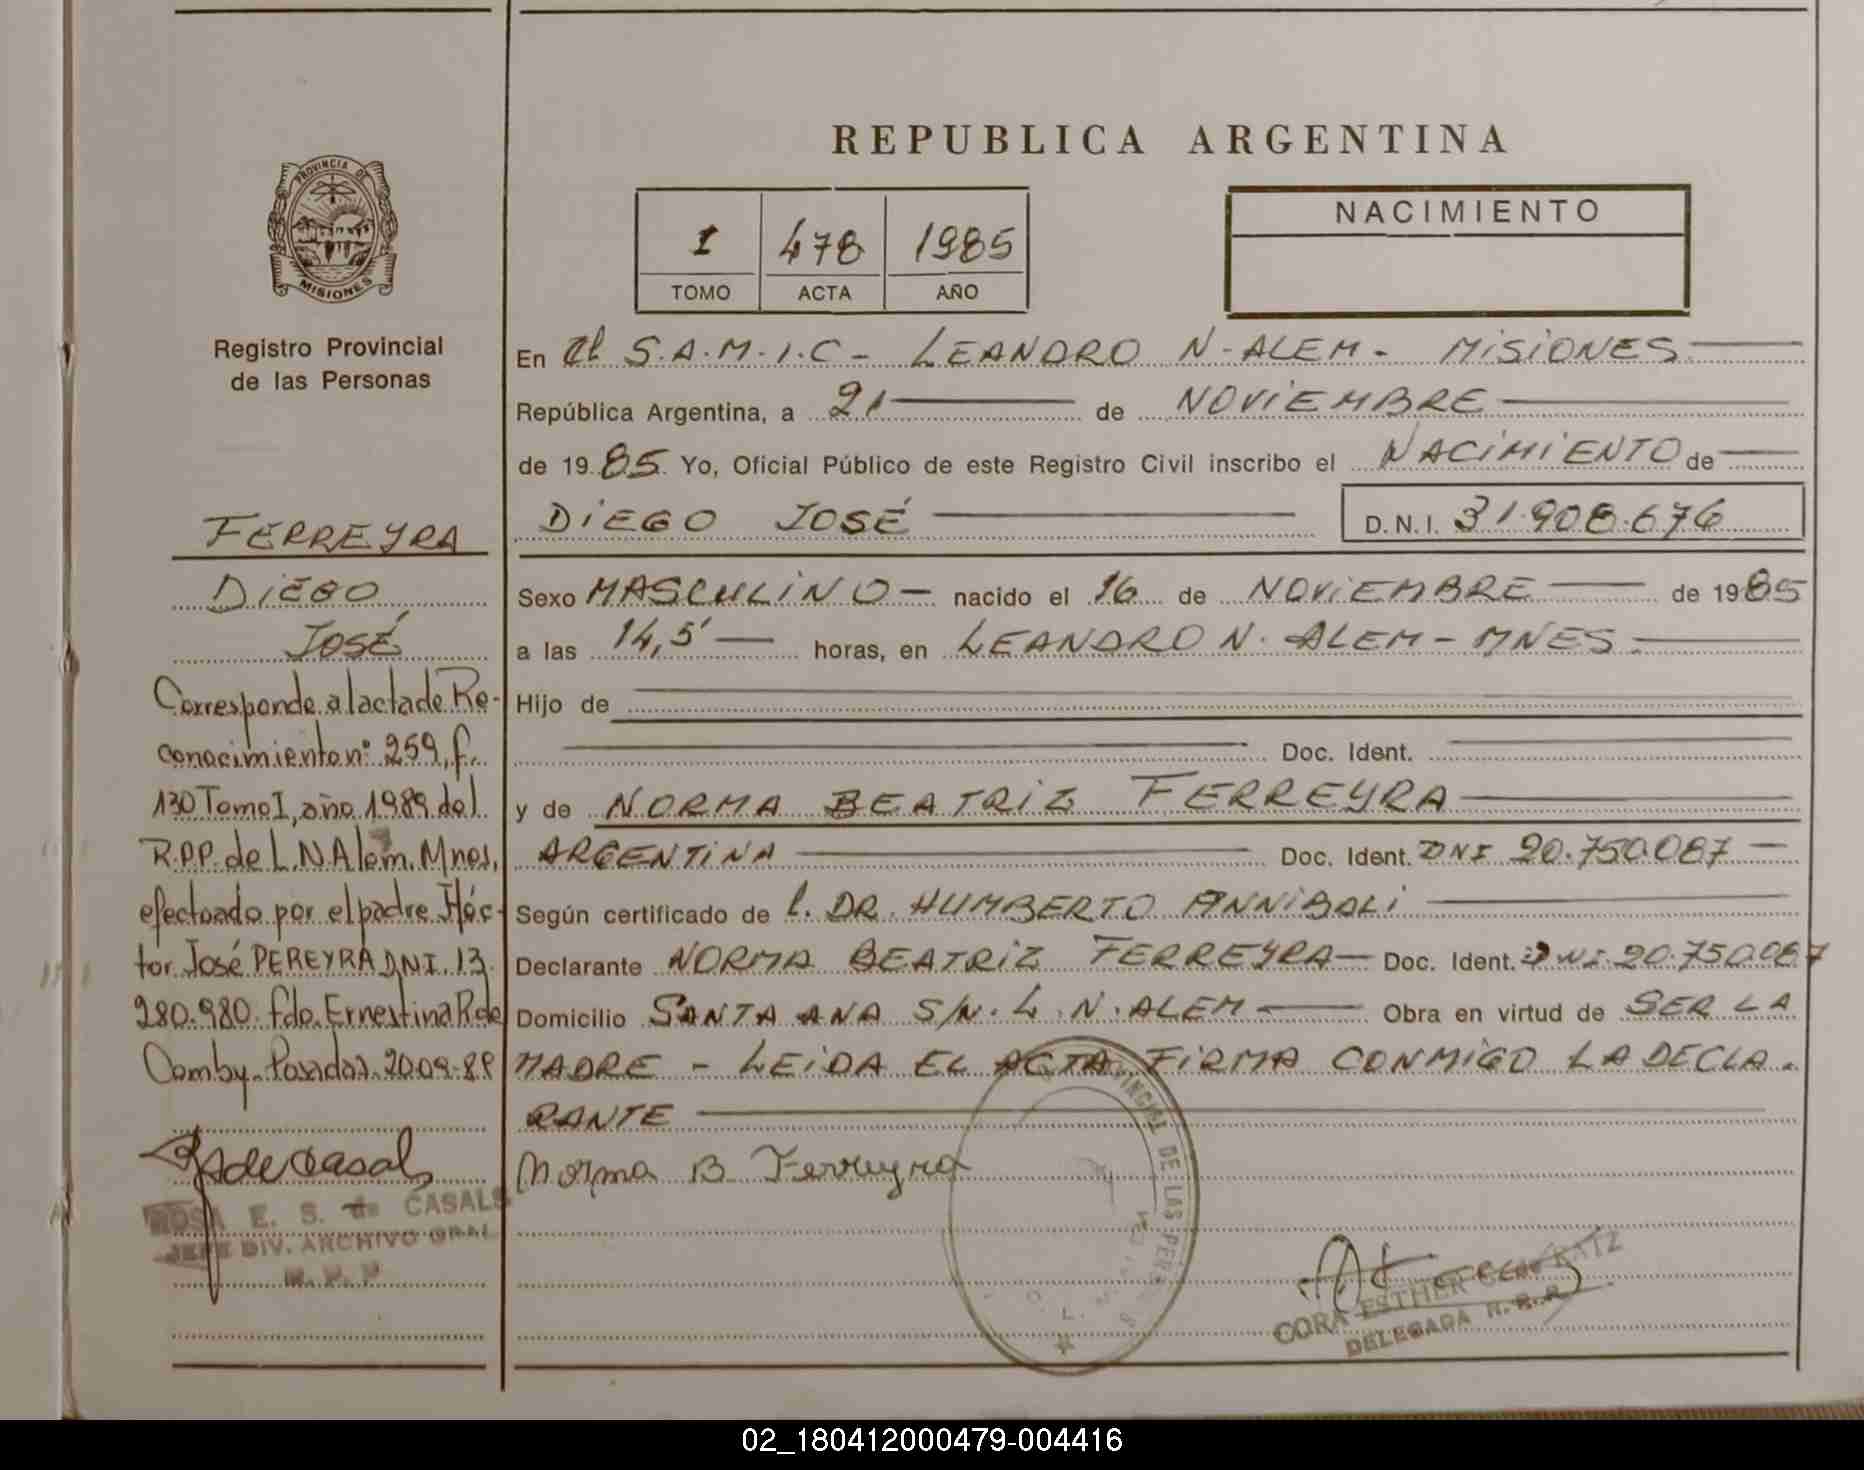 REPUBLICA ARGENTINA
PROVINCIA DE
MISIONES
1 478 1985
TOMO ACTA AÑO
NACIMIENTO
Registro Provincial
de las Personas
FERREYRA
DIEGO
JOSÉ
Corresponde al acta de Re-
conocimiento nº 259, f.
130 Tomo I, año 1989 del
R.P.P. de L.N.Alem. Mnes,
efectuado por el padre Héc-
tor José PEREYRA DNI. 13.
280.980. fdo. Ernestina R. de
Comby. Posadas. 20.09.89
R. de Casals
ROSA E. S. de CASALS
JEFE DIV. ARCHIVO GRAL
R. P. P
En el S.A.M.I.C - LEANDRO N. ALEM - MISIONES
República Argentina, a 21 de NOVIEMBRE
de 19 85 Yo, Oficial Público de este Registro Civil inscribo el NACIMIENTO de
DIEGO JOSÉ D.N.I. 31.908.676
Sexo MASCULINO - nacido el 16 de NOVIEMBRE de 1985
a las 14,5' horas, en LEANDRO N. ALEM - MNES.
Hijo de
Doc. Ident.
y de NORMA BEATRIZ FERREYRA
ARGENTINA Doc. Ident. DNI 20.750.087
Según certificado de l. DR. HUMBERTO ANNIBALI
Declarante NORMA BEATRIZ FERREYRA - Doc. Ident. DNI 20.750.087
Domicilio SANTA ANA S/N. L. N. ALEM Obra en virtud de SER LA
MADRE - LEIDA EL ACTA FIRMA CONMIGO LA DECLA-
RANTE
Norma B Ferreyra
PROVINCIAL DE LAS PERS
CORA ESTHER G. de RATZ
DELEGADA R. P. P.
02_180412000479-004416